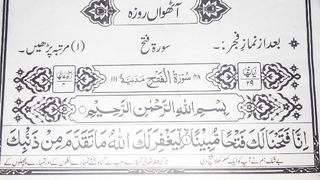 آٹھواں روزہ
بعد از نماز فجر:۔ سورۃ فتح (۱) مرتبہ پڑھیں۔
۴۸ سُوْرَةُ الْفَتْحِ مَدَنِيَّةٌ ۱۱۱
بِسْمِ اللهِ الرَّحْمٰنِ الرَّحِيْمِ
اِنَّا فَتَحْنَا لَكَ فَتْحًا مُّبِيْنًا لِّيَغْفِرَ لَكَ اللهُ مَا تَقَدَّمَ مِنْ ذَنْۢبِكَ